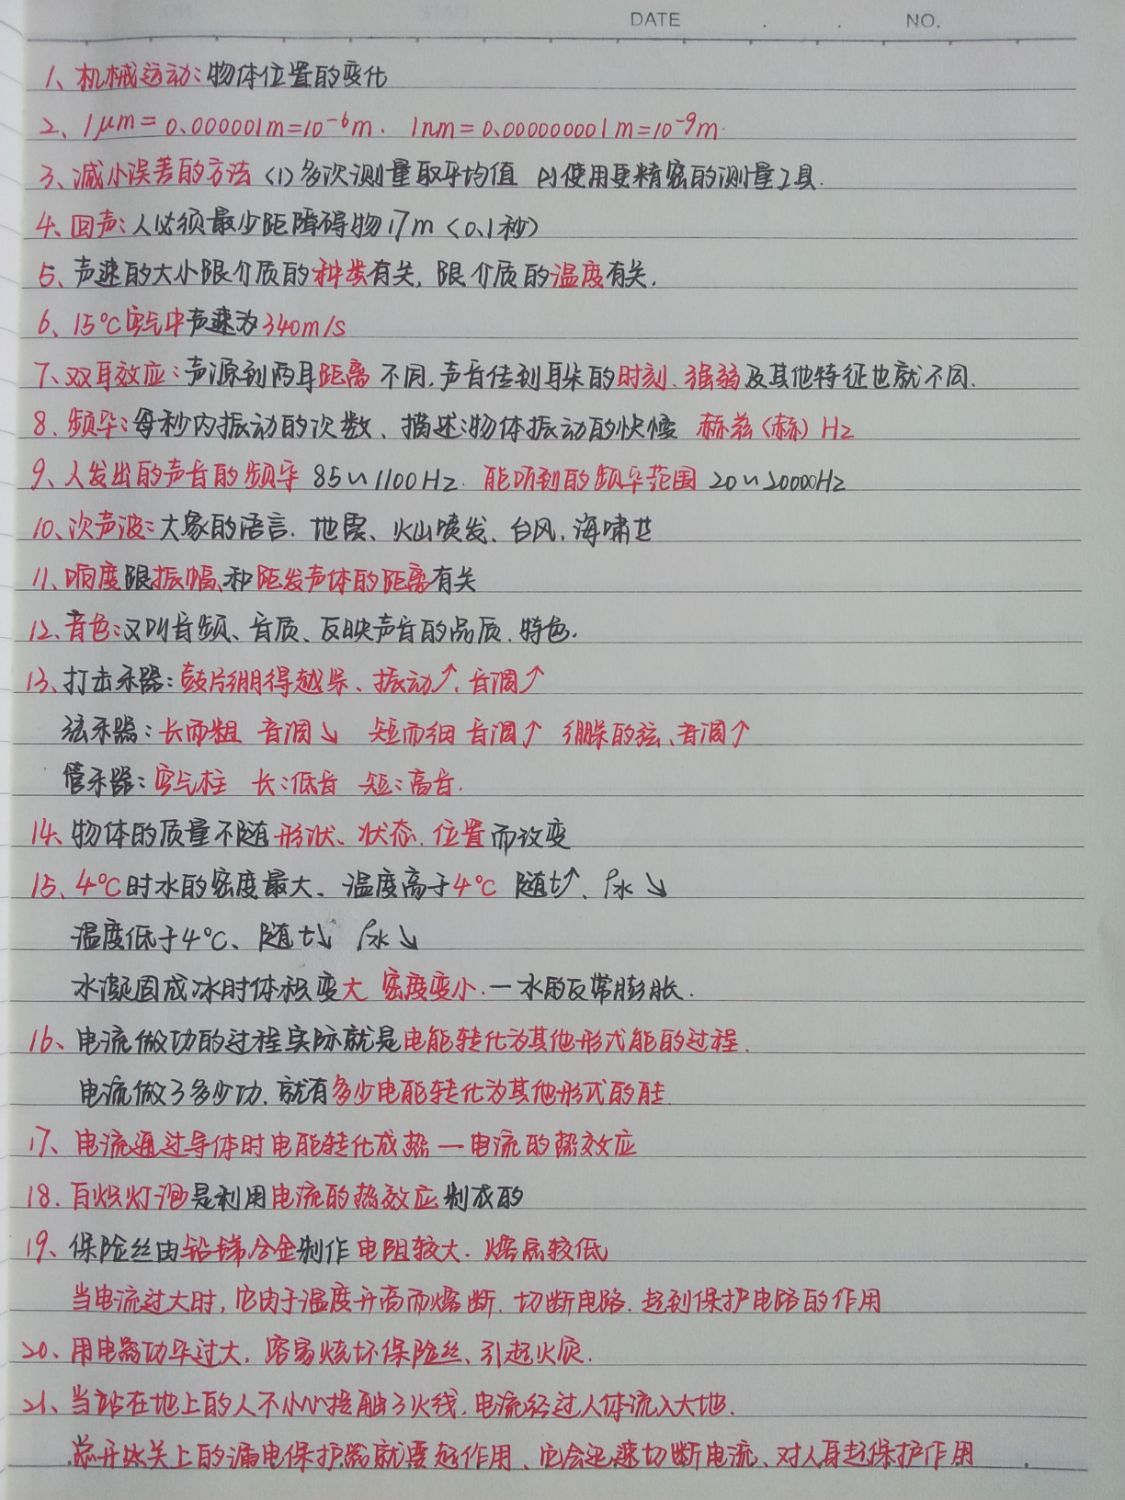 DATE . . NO.
1、机械运动:物体位置的变化
2、1μm=0.000001m=10⁻⁶m. 1nm=0.000000001m=10⁻⁹m.
3、减小误差的方法 (1)多次测量取平均值 (2)使用更精密的测量工具.
4、回声:人必须最少距障碍物17m(0.1秒)
5、声速的大小跟介质的种类有关,跟介质的温度有关.
6、15℃空气中声速为340m/s
7、双耳效应:声源到两耳距离不同,声音传到耳朵的时刻、强弱及其他特征也就不同.
8、频率:每秒内振动的次数、描述:物体振动的快慢 赫兹(赫) Hz
9、人发出的声音的频率 85~1100Hz. 能听到的频率范围 20~20000Hz
10、次声波:大象的语言. 地震、火山喷发、台风,海啸
11、响度跟振幅、和距发声体的距离有关
12、音色:又叫音频、音质、反映声音的品质、特色.
13、打击乐器:鼓片绷得越紧、振动↑、音调↑
弦乐器:长而粗 音调↘ 短而细 音调↑ 绷紧的弦、音调↑
管乐器:空气柱 长:低音 短:高音.
14、物体的质量不随形状、状态、位置而改变
15、4℃时水的密度最大、温度高于4℃ 随t↑、ρ水↘
温度低于4℃、随t↘ ρ水↘
水凝固成冰时体积变大 密度变小.—水的反常膨胀.
16、电流做功的过程实际就是电能转化为其他形式能的过程.
电流做了多少功.就有多少电能转化为其他形式的能
17、电流通过导体时电能转化成热—电流的热效应
18、白炽灯泡是利用电流的热效应制成的
19、保险丝由铅锑合金制作 电阻较大. 熔点较低
当电流过大时,它由于温度升高而熔断.切断电路.起到保护电路的作用
20、用电器功率过大,容易烧坏保险丝、引起火灾.
21、当站在地上的人不小心接触了火线.电流经过人体流入大地.
总开关上的漏电保护器就要起作用、它会迅速切断电流、对人身起保护作用